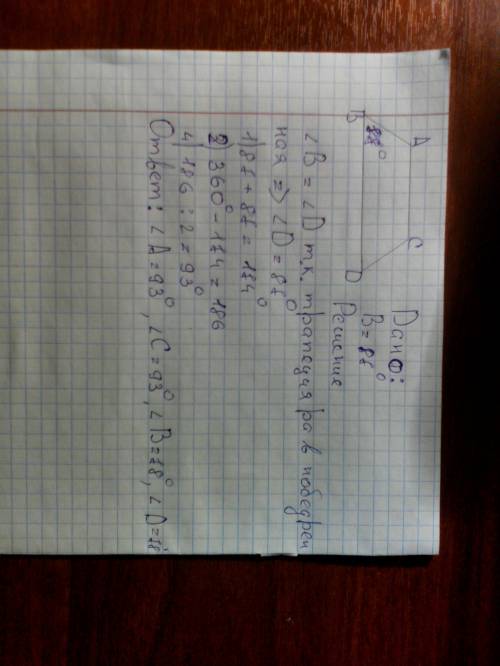 A C
B 87° D
Дано:
B = 87°
Решение
∠B = ∠D т.к. трапеция рав нобедрен
ная => ∠D = 87°
1) 87 + 87 = 174°
2) 360° - 174 = 186
4) 186 : 2 = 93°
Ответ: ∠A = 93°, ∠C = 93°, ∠B = 78°, ∠D = 78°